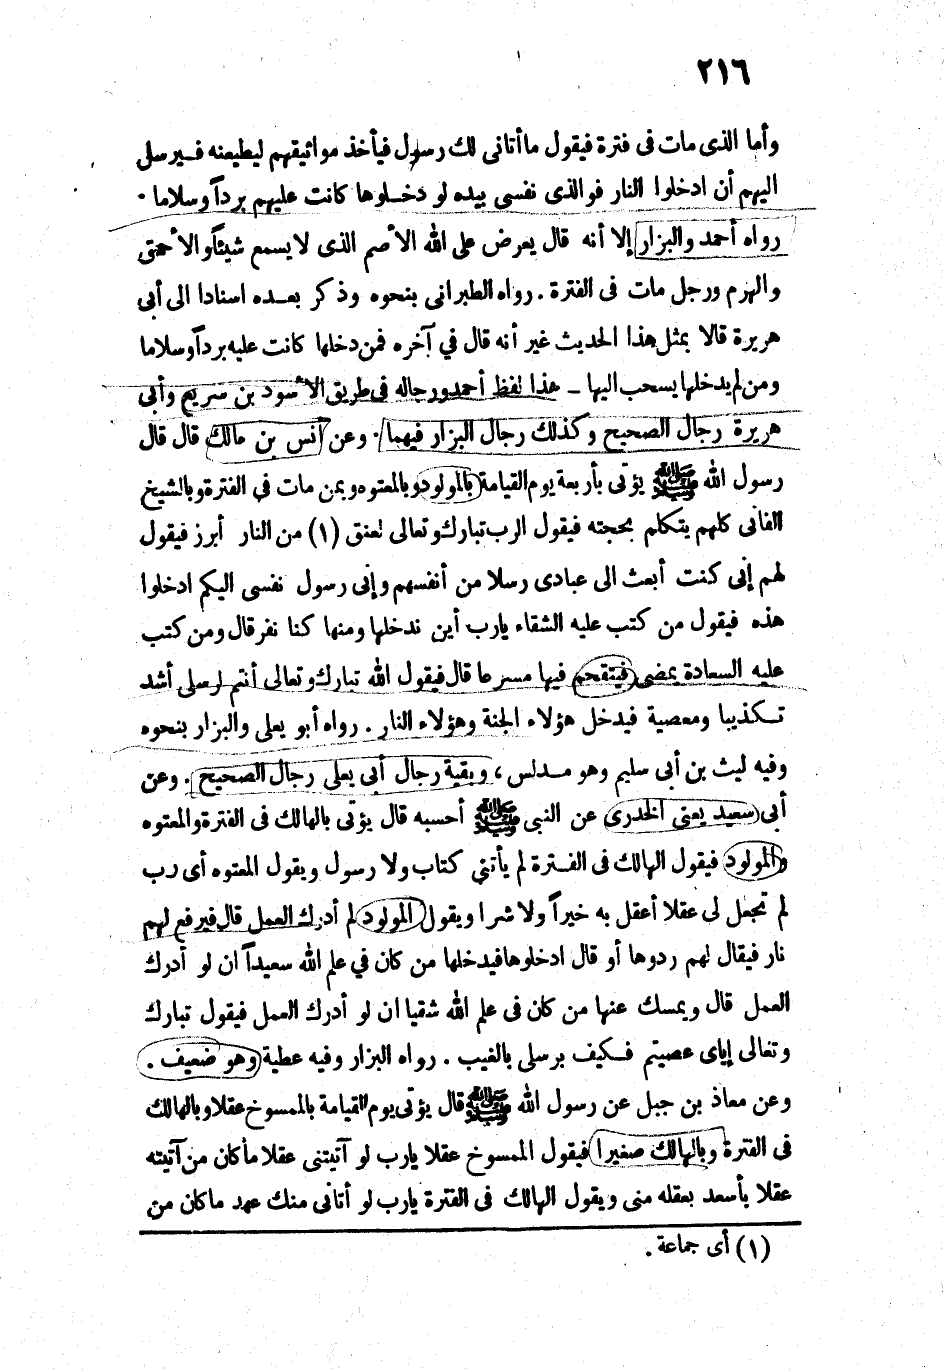 ٢١٦
وأما الذى مات فى فترة فيقول ما أتانى لك رسول فيأخذ مواثيقهم ليطيعنه فـيرسل
اليهم أن ادخلوا النار فوالذى نفسى بيده لو دخـلوها كانت عليهم برداً وسلاما .
رواه أحمد والبزار إلا أنه قال يعرض على الله الأصم الذى لا يسمع شيئاً والأحمق
والهرم ورجل مات فى الفترة . رواه الطبرانى بنحوه وذكر بعـده اسنادا الى أبى
هريرة قالا بمثل هذا الحديث غير أنه قال في آخره فمن دخلها كانت عليه برداً وسلاما
ومن لم يدخلها يسحب اليها ـ هذا لفظ أحمد ورجاله فى طريق الأسود بن سريع وأبى
هريرة رجال الصحيح وكذلك رجال البزار فيهما . وعن أنس بن مالك قال قال
رسول الله ﷺ يؤتى بأربعة يوم القيامة بالمولود وبالمعتوه وبمن مات في الفترة وبالشيخ
الفانى كلهم يتكلم بحجته فيقول الرب تبارك وتعالى لعنق (١) من النار أبرز فيقول
لهم إنى كنت أبعث الى عبادى رسلا من أنفسهم وإنى رسول نفسى اليكم ادخلوا
هذه فيقول من كتب عليه الشقاء يارب أين ندخلها ومنها كنا نفر قال ومن كتب
عليه السعادة يمضى فيتقحم فيها مسرعا قال فيقول الله تبارك وتعالى أنتم لرسلى أشد
تـكذيبا ومعصية فيدخل هؤلاء الجنة وهؤلاء النار . رواه أبو يعلى والبزار بنحوه
وفيه ليث بن أبى سليم وهو مـدلس ، وبقية رجال أبى يعلى رجال الصحيح . وعن
أبى سعيد يعنى الخدرى عن النبى ﷺ أحسبه قال يؤتى بالهالك فى الفترة والمعتوه
والمولود فيقول الهالك فى الفـترة لم يأتنى كتاب ولا رسول ويقول المعتوه أى رب
لم تجعل لى عقلا أعقل به خيراً ولا شرا ويقول المولود لم أدرك العمل قال فيرفع لهم
نار فيقال لهم ردوها أو قال ادخلوها فيدخلها من كان في علم الله سعيداً ان لو أدرك
العمل قال ويمسك عنها من كان فى علم الله شقيا ان لو أدرك العمل فيقول تبارك
وتعالى إياى عصيتم فـكيف برسلى بالغيب . رواه البزار وفيه عطية وهو ضعيف .
وعن معاذ بن جبل عن رسول الله ﷺ قال يؤتى يوم القيامة بالممسوخ عقلا وبالهالك
فى الفترة وبالهالك صغيرا فيقول الممسوخ عقلا يارب لو آتيتنى عقلا ما كان من آتيته
عقلا بأسعد بعقله منى ويقول الهالك فى الفترة يارب لو أتانى منك عهد ما كان من
(١) أى جماعة .